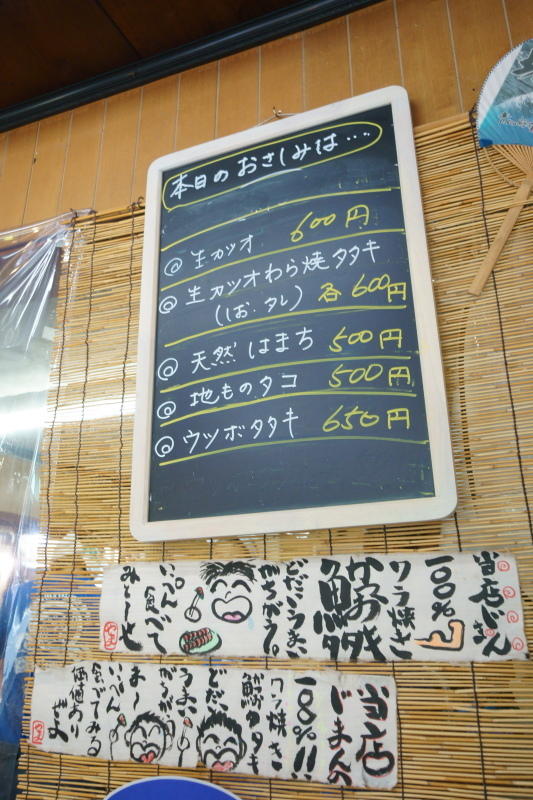 本日のおさしみは…
@ 生カツオ 600円
@ 生カツオわら焼タタキ
(しお・タレ) 各600円
@ 天然はまち 500円
@ 地ものタコ 500円
@ ウツボタタキ 650円
当店じまん
100%
ワラ焼き
かつおタタキ
どだいうまい
がちがう。
いっぺん
食べて
みとーせ
当店
じまんの
100%!!
ワラ焼き
鰹タタキ
どだい
うまい
がるが
ま～
いっぺん
食べてみる
価値あり
ぜよ